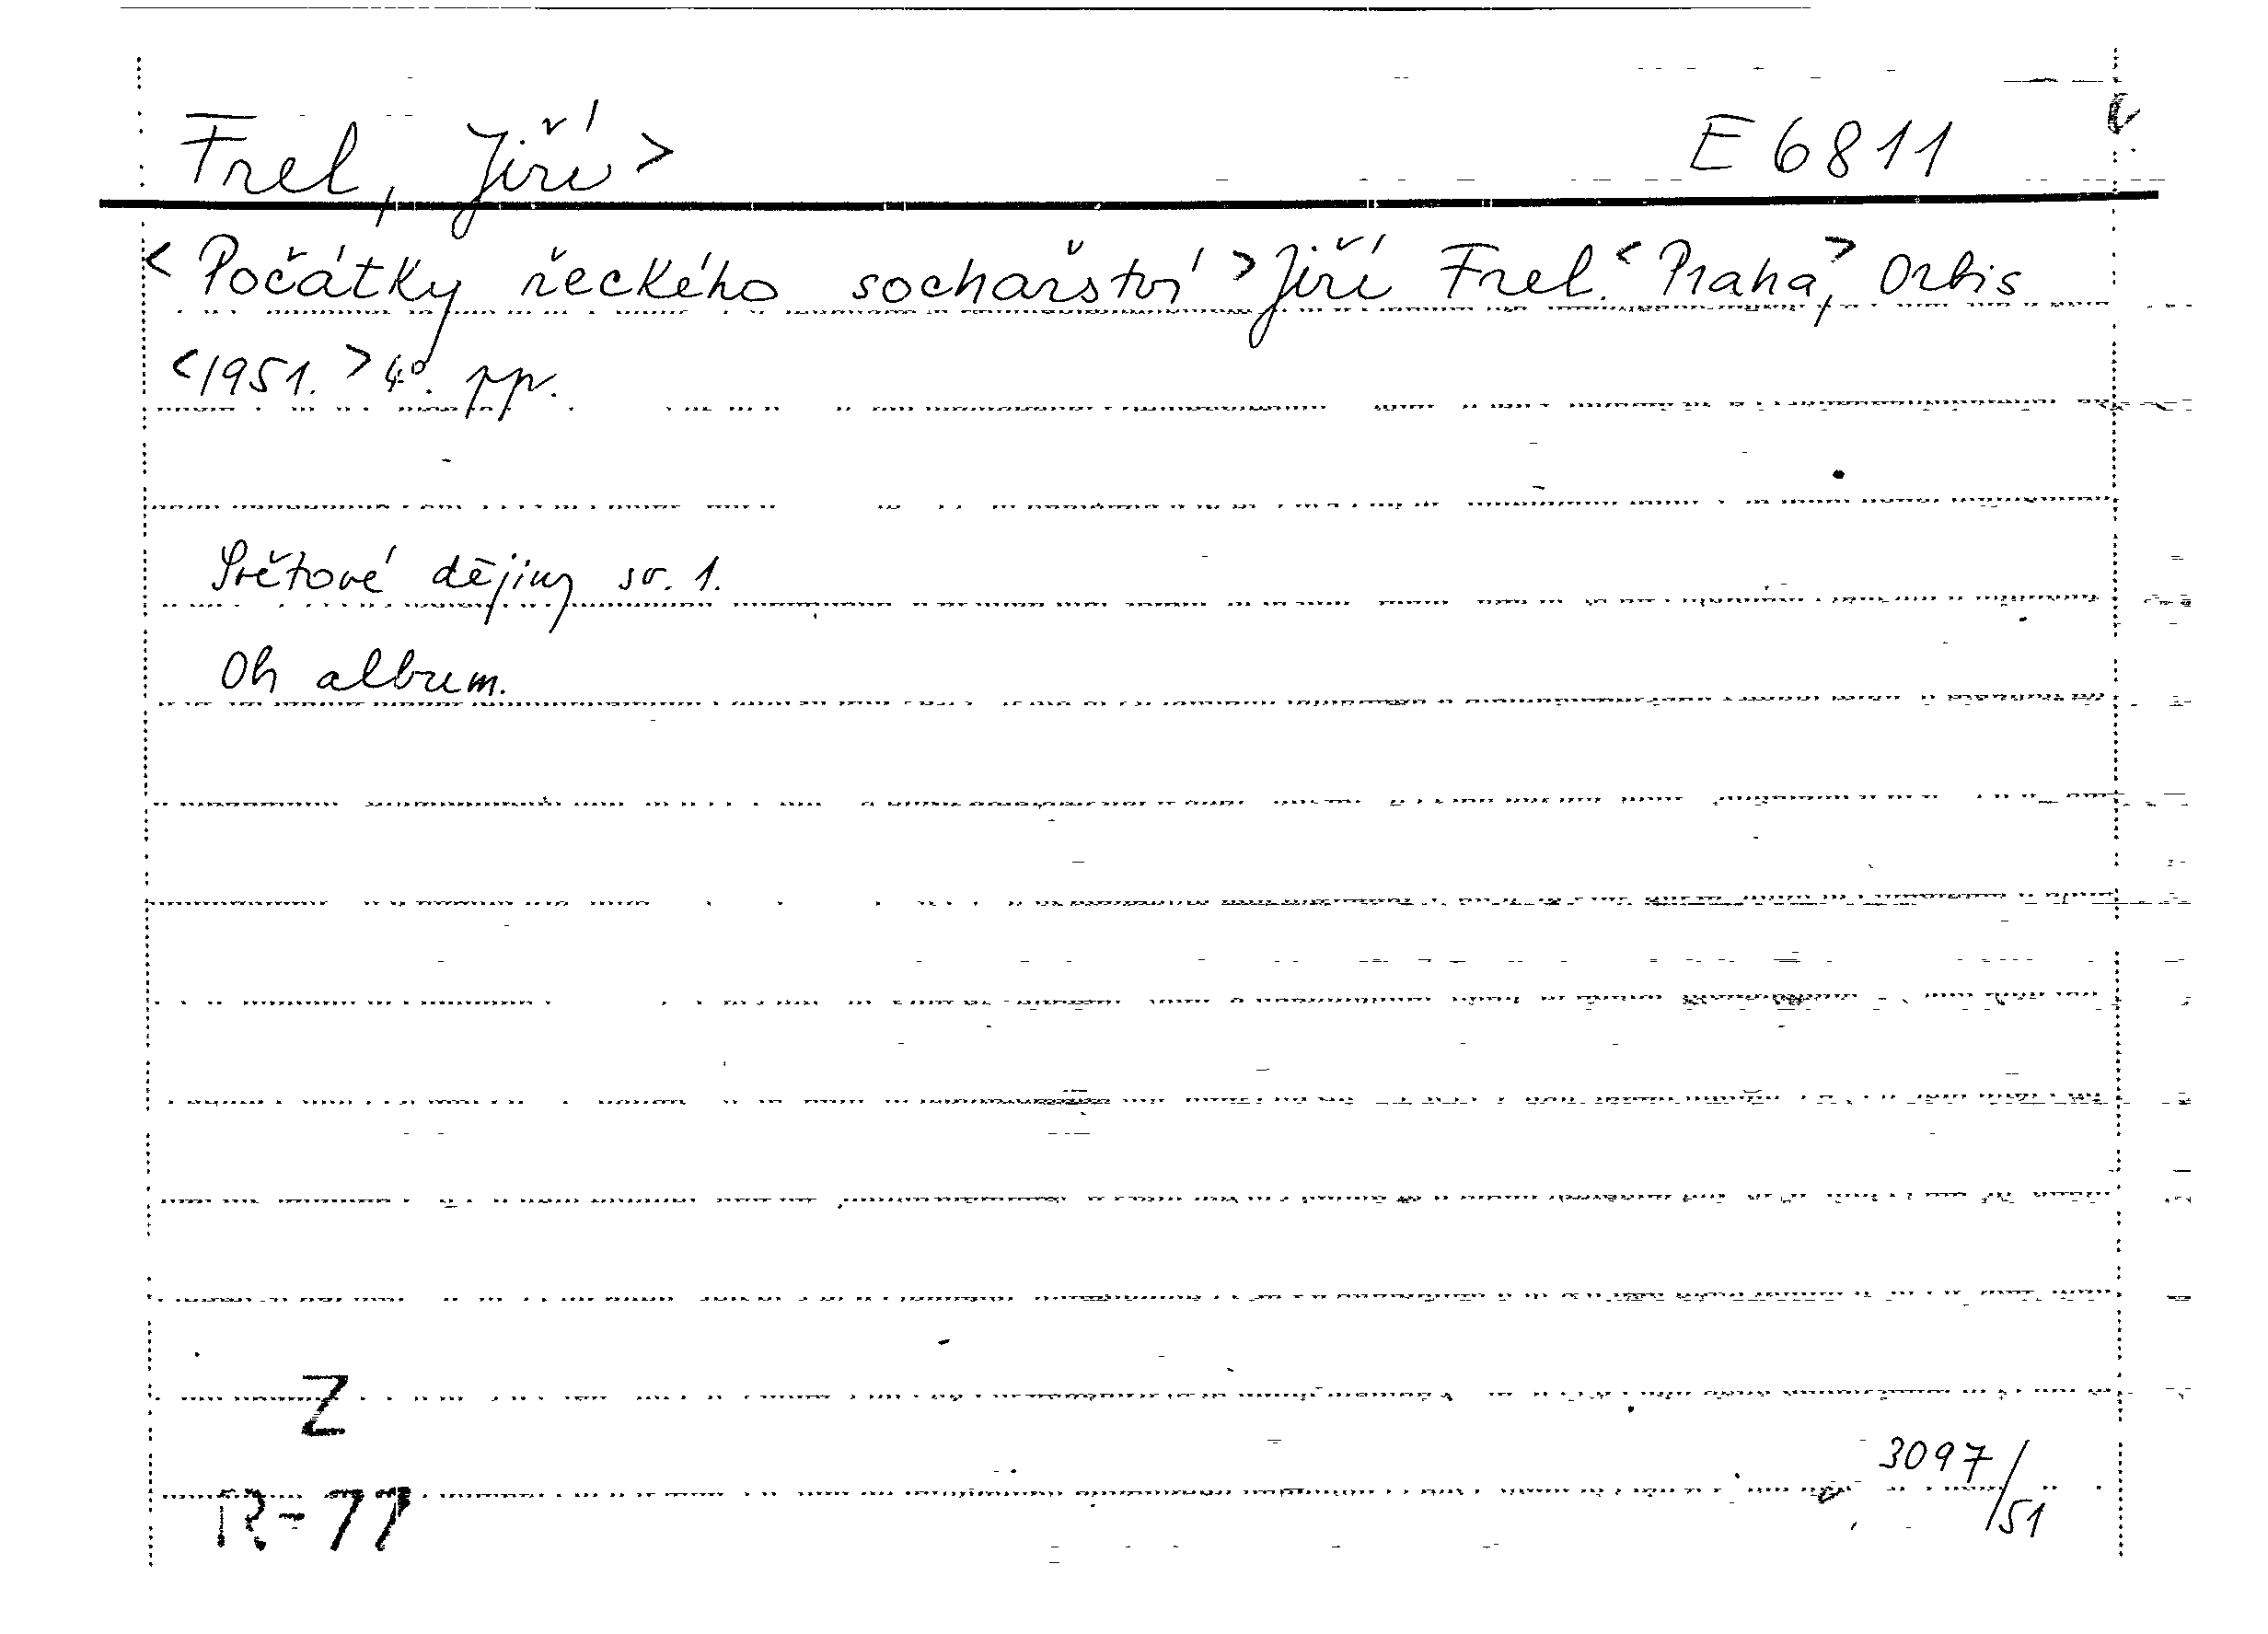 Frel, Jiří> E 6811
<Počátky řeckého sochařství> Jiří Frel. <Praha,> Orbis
<1951.> 4°. pp.
Světové dějiny sv. 1.
Oh album.
Z
3097/51
R-77